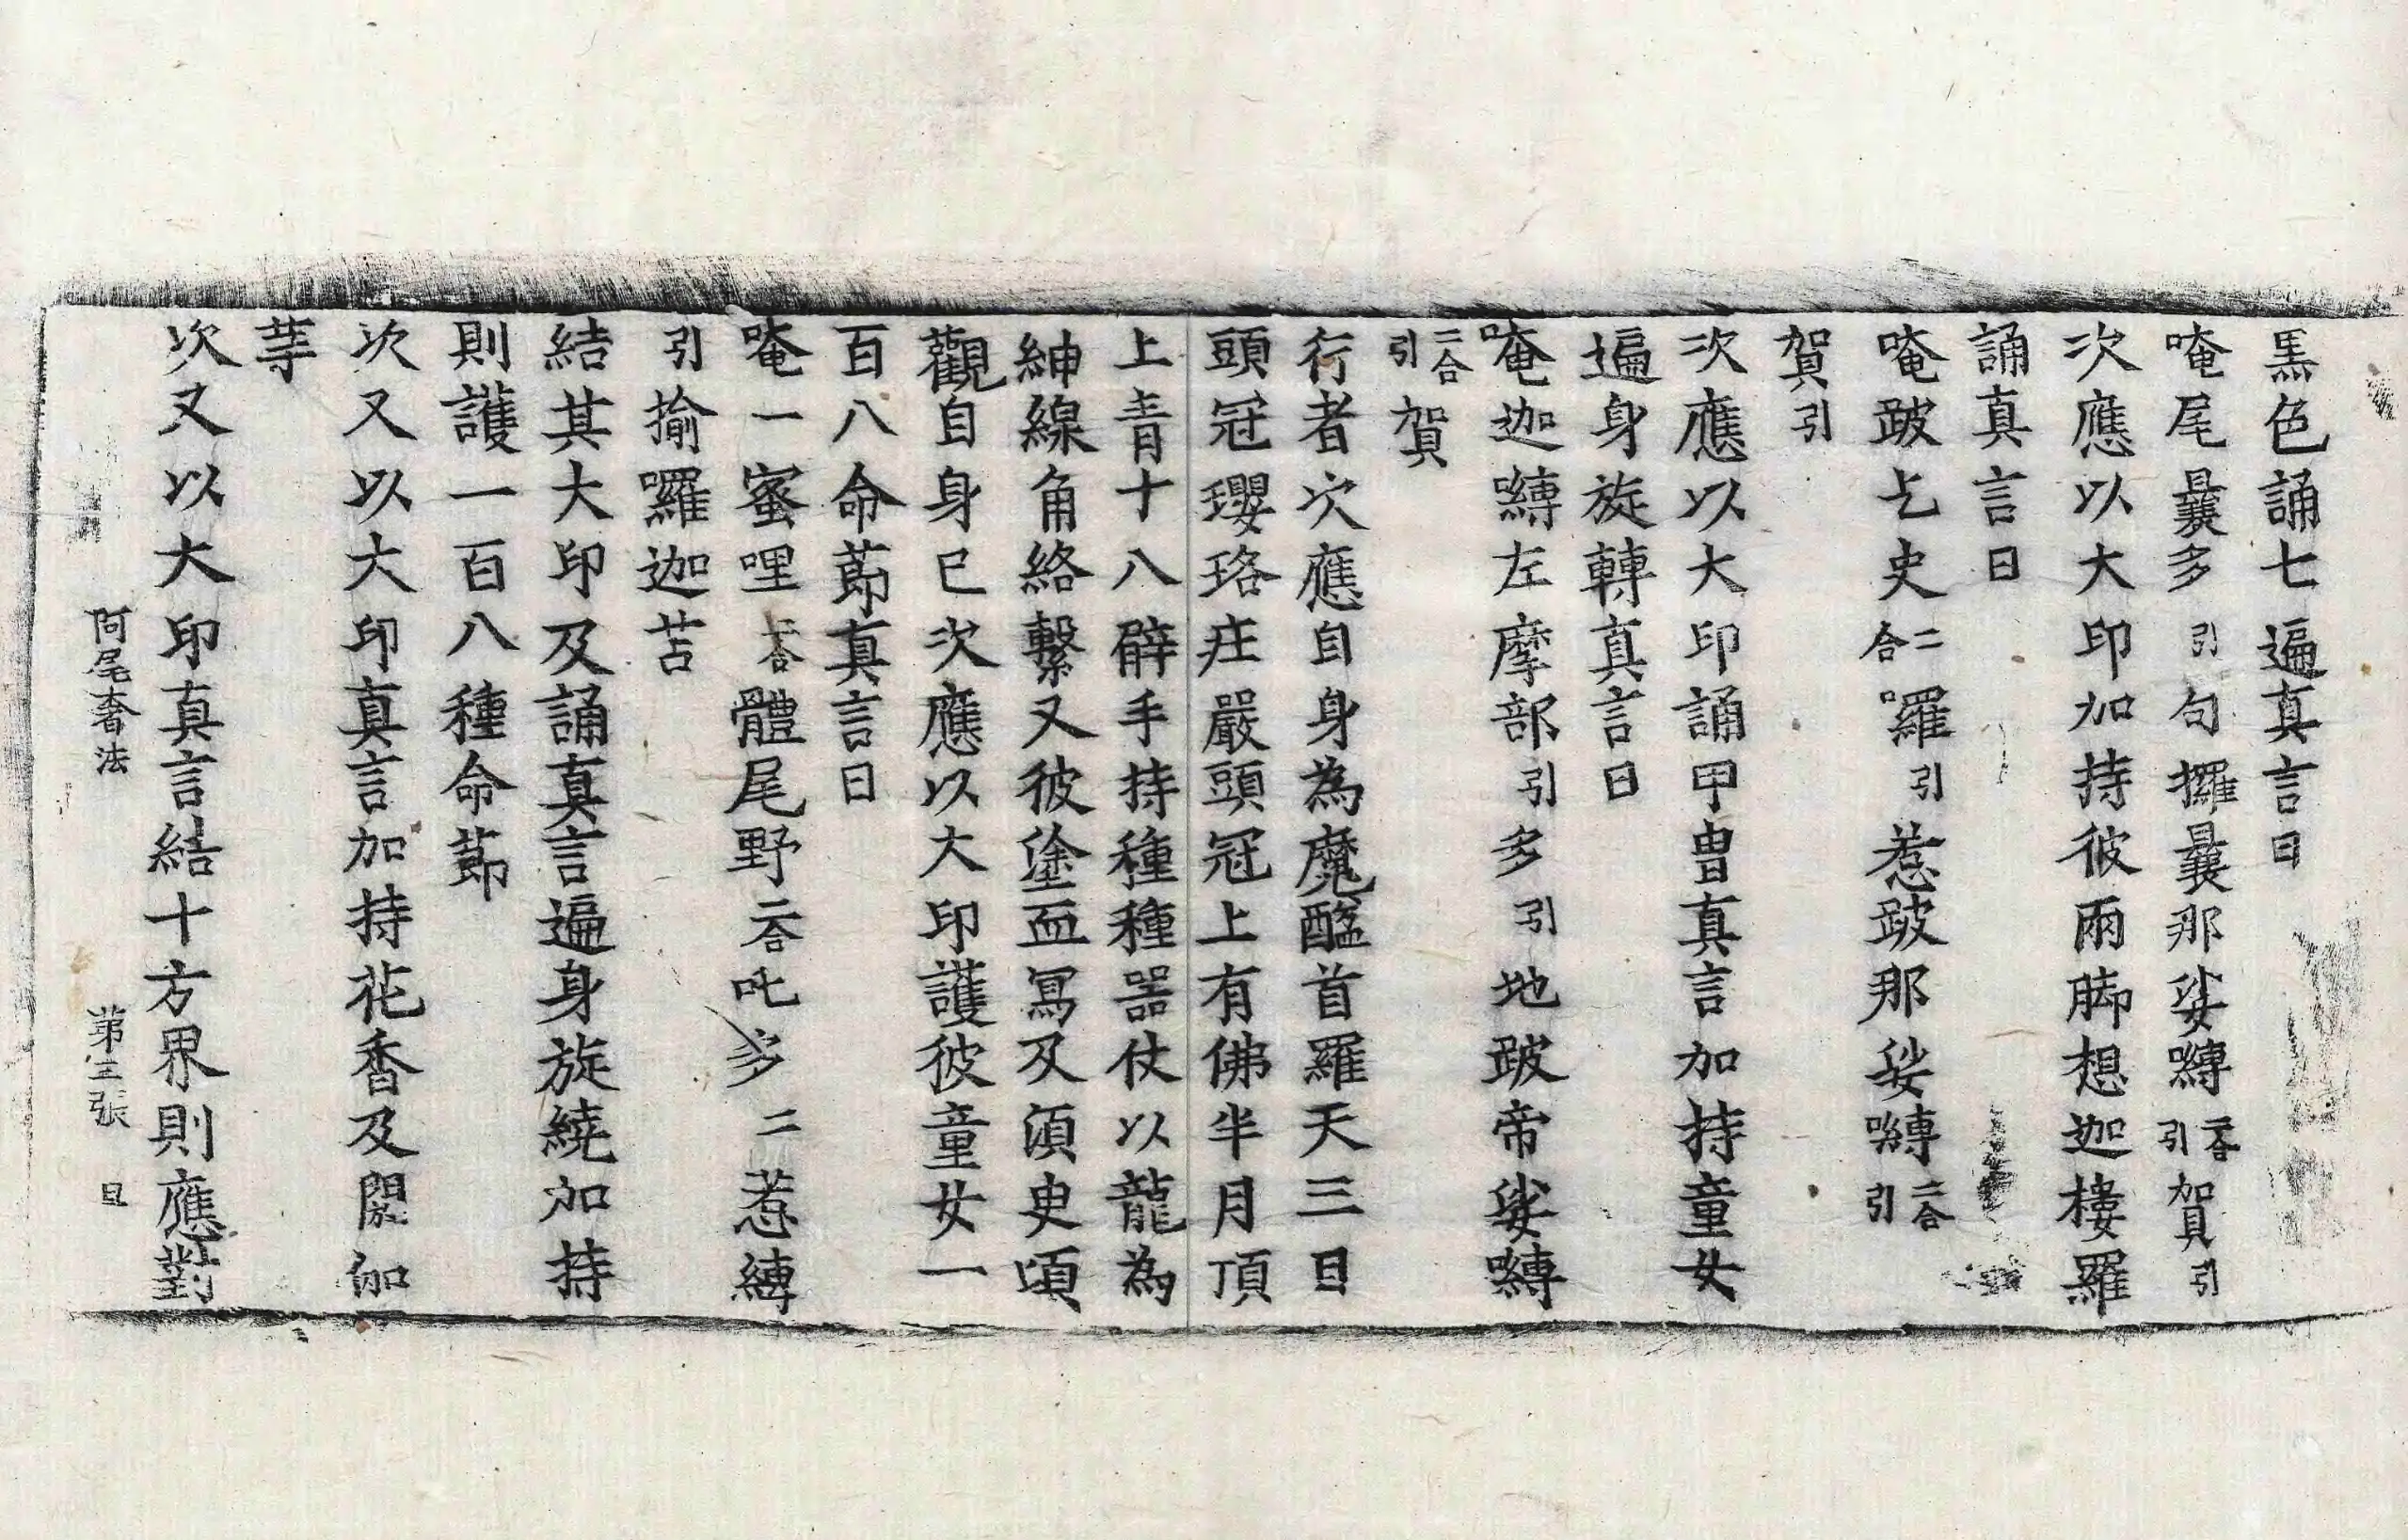 黒色誦七遍真言曰
唵尾曩多引句攞曩那娑嚩二合引賀引
次應以大印加持彼兩脚想迦樓羅
誦真言曰
唵跛乞史二合囉引惹跛那娑嚩二合引
賀引
次應以大印誦甲冑真言加持童女
遍身旋轉真言曰
唵迦嚩左摩部引多引地跛帝娑嚩
二合引賀
行者次應自身為魔醯首羅天三目
頭冠瓔珞庄嚴頭冠上有佛半月頂
上青十八臂手持種種器仗以龍為
紳線角絡繫又彼塗血冩及湏臾頃
觀自身已次應以大印護彼童女一
百八命莭真言曰
唵一蜜哩二合體尾野二合吒多二惹縛
引揄囉迦苫
結其大印及誦真言遍身旋繞加持
則護一百八種命莭
次又以大印真言加持花香及閼伽
等
次又以大印真言結十方界則應對
阿尾奢法 第三張